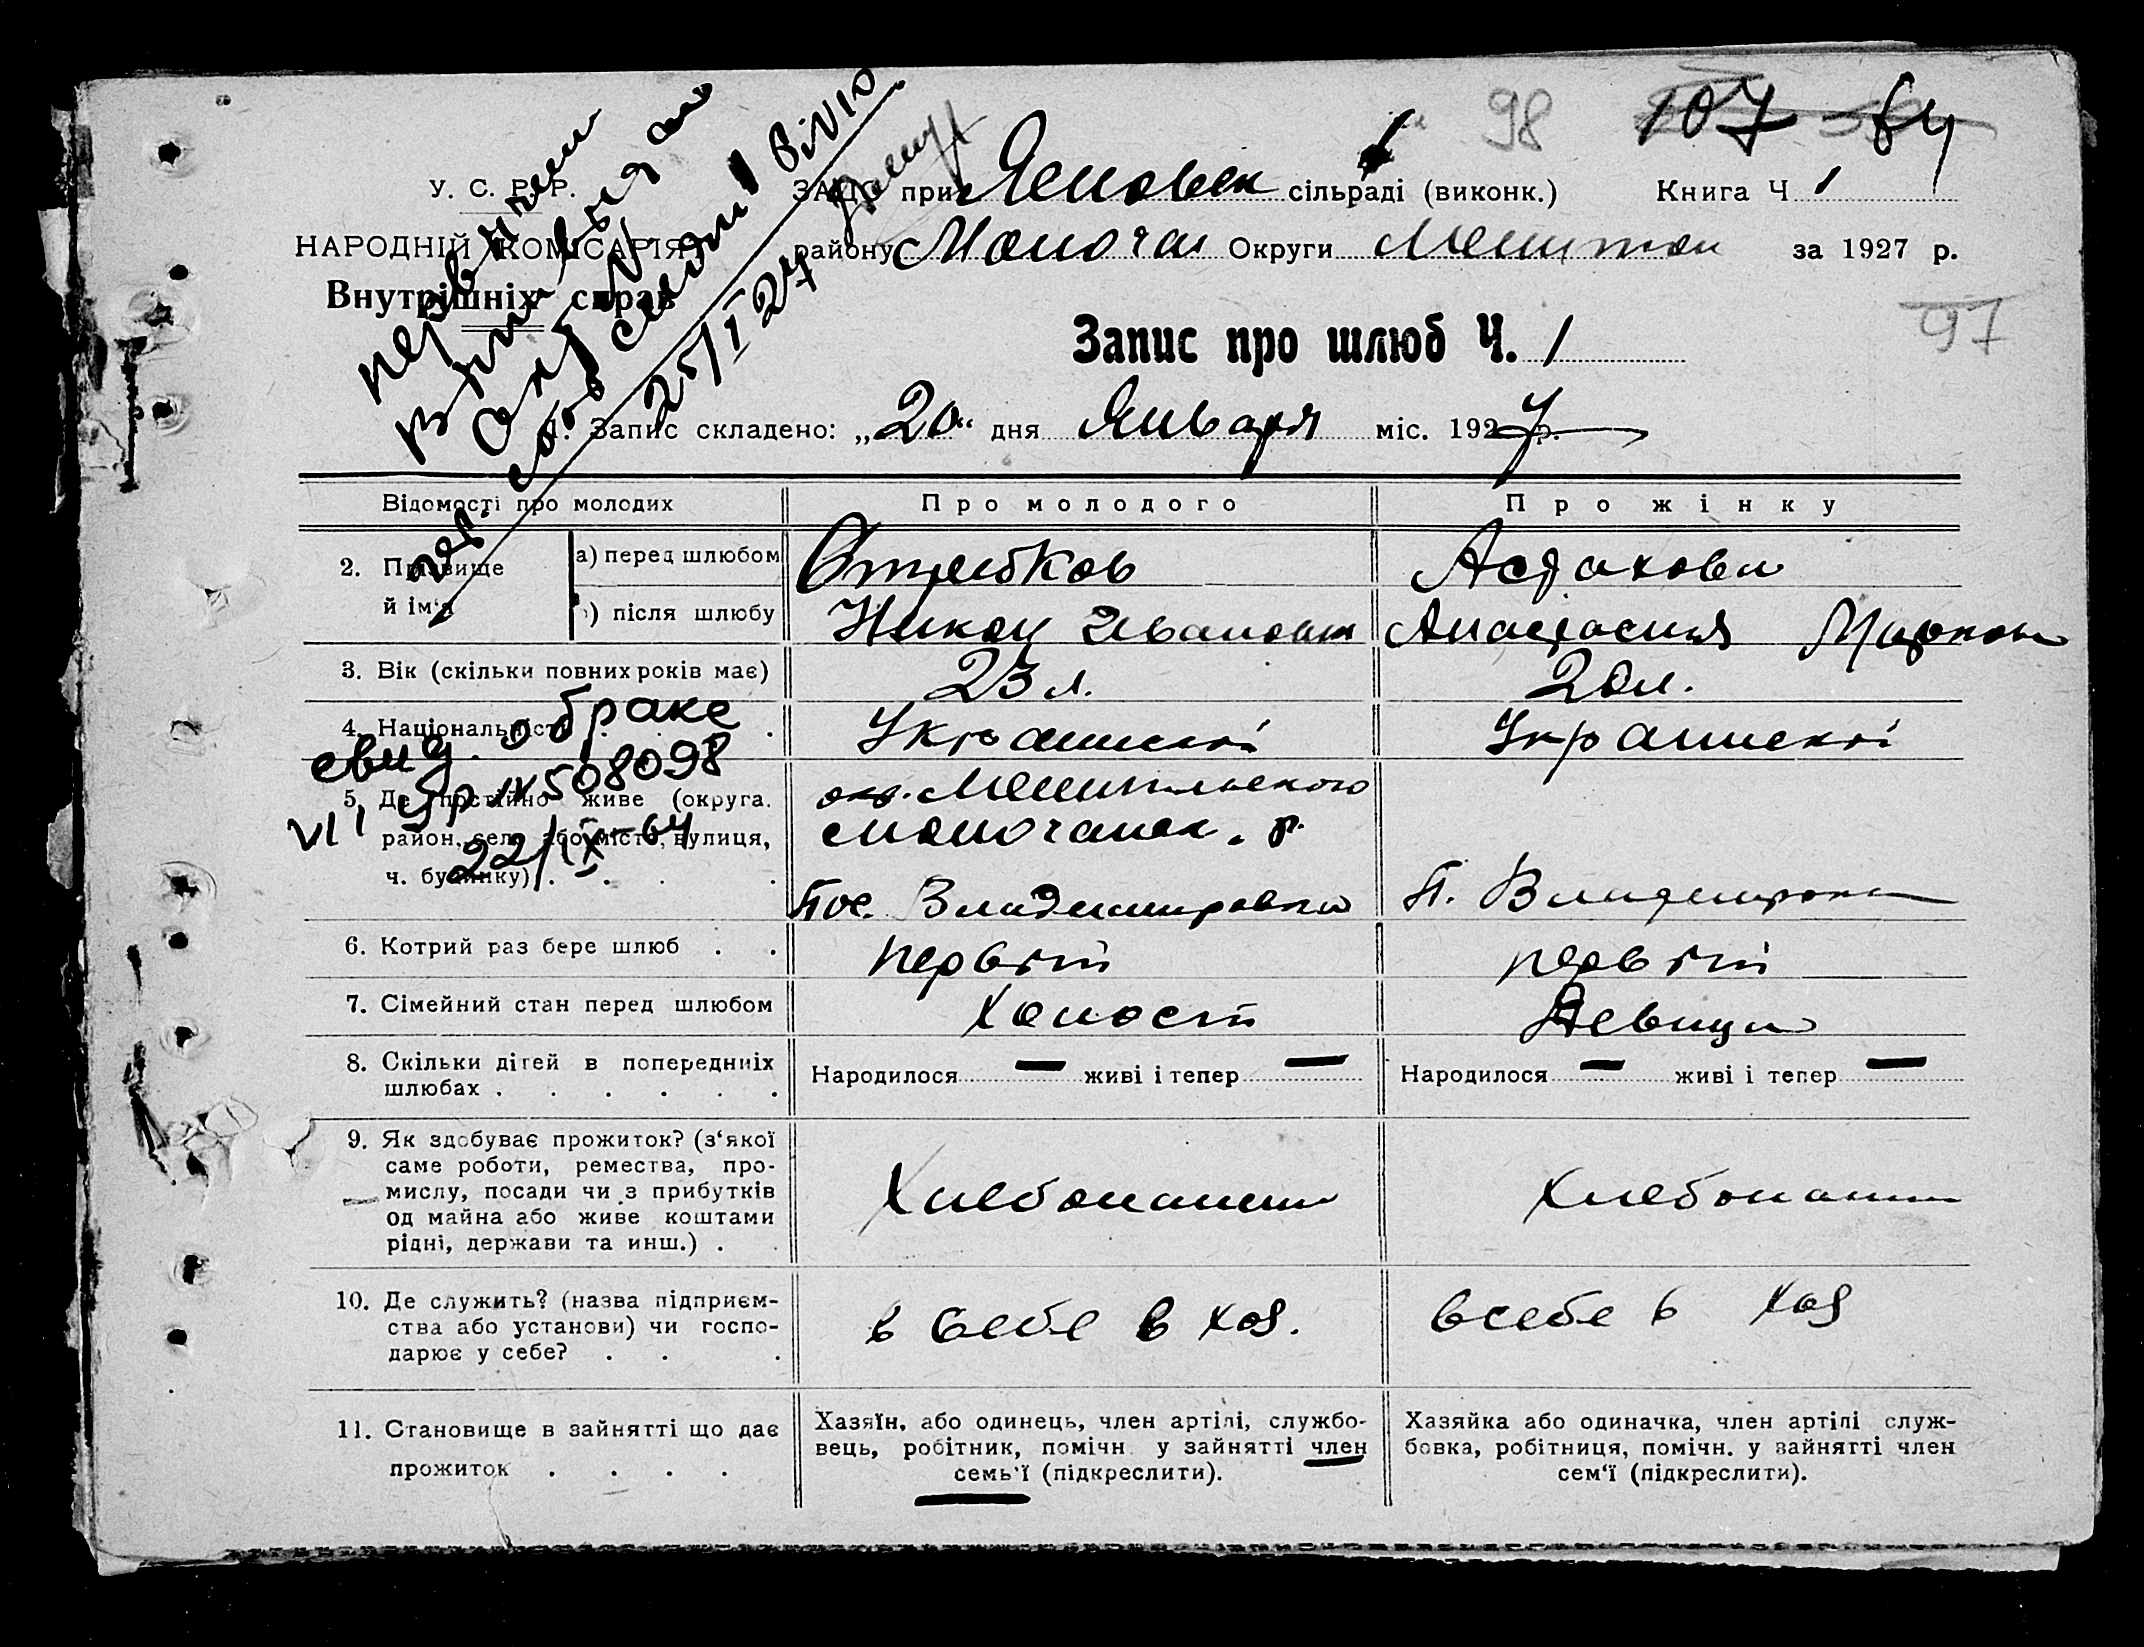 98 107 64
У. С. Р. Р.
ЗАЦС при сільраді (виконк.) Книга Ч 1
НАРОДНІЙ КОМІСАРІЯТ
району Молочан Округи Мелитоп за 1927 р.
Внутрішніх справ
97
Запис про шлюб Ч. 1
25/I 27
1. Запис складено: „20“ дня Января міс. 1927 р.
Відомості про молодих Про молодого Про жінку
2. Прізвище й ім‘я
а) перед шлюбом Отрешков Астахова
б) після шлюбу Никон Иванович Анастасия Марков
3. Вік (скільки повних років має) 23 л. 20 л.
4. Національність Украинский Украинский
свид. о браке
VII УР № 508098
22/IX-64
5. Де постійно живе (округа.
район, село або місто, вулиця,
ч. будинку)
окр. Мелитпольского
Молочанск. р.
Пос. Владимировка П. Владимировка
6. Котрий раз бере шлюб первый первый
7. Сімейний стан перед шлюбом Холост Девица
8. Скільки дітей в попередніх
шлюбах
Народилося — живі і тепер — Народилося — живі і тепер —
9. Як здобуває прожиток? (з‘якої
саме роботи, ремества, про-
мислу, посади чи з прибутків
од майна або живе коштами
рідні, держави та инш.)
Хлебопашец Хлебопашец
10. Де служить? (назва підприєм-
ства або установи) чи госпо-
дарює у себе?
в себе в хоз. в себе в хоз
11. Становище в зайнятті що дає
прожиток
Хазяїн, або одинець, член артілі, службо-
вець, робітник, помічн. у зайнятті член
семь‘ї (підкреслити).
Хазяйка або одиначка, член артілі служ-
бовка, робітниця, помічн. у зайнятті член
сем‘ї (підкреслити).